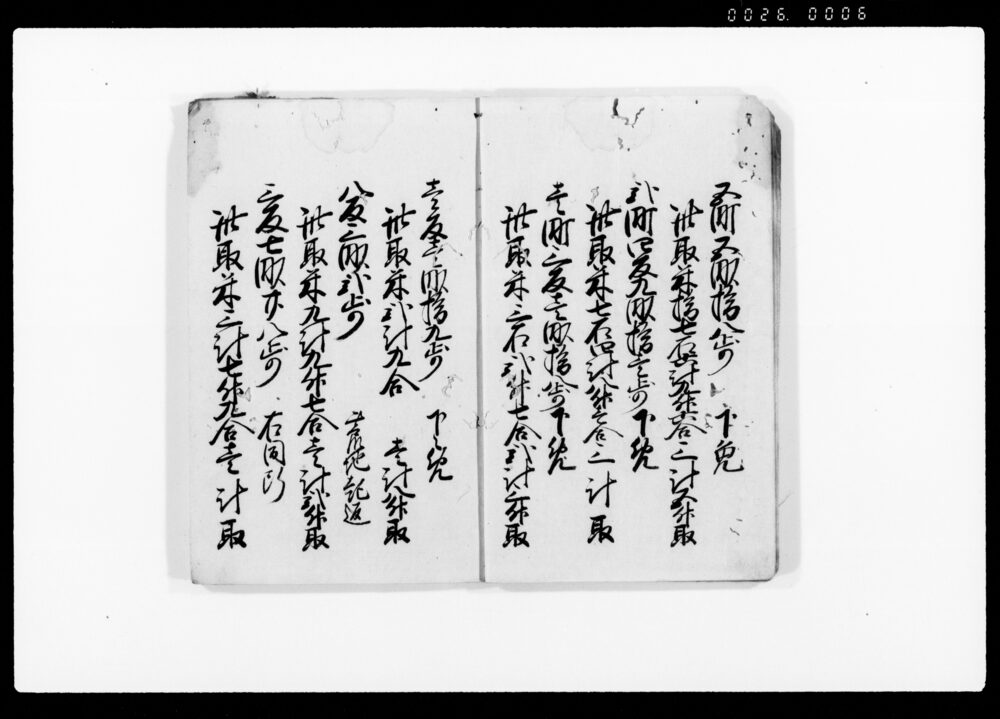 五町五畝拾八歩　下免
此取米拾七石六斗九升六合　三斗五升取
弐町四反九畝拾壱歩　下免
此取米七石四斗八升壱合　三斗取
壱町三反壱畝拾八歩　下免
此取米三石弐升七合　弐斗三升取
壱反壱畝拾九歩　下々免
此取米弐斗九合　壱斗八升取
八反三畝弐歩　荒地起返
此取米九斗九升七合　壱斗弐升取
三反七畝廿八歩　右同断
此取米三斗七升九合　壱斗取
0026. 0006